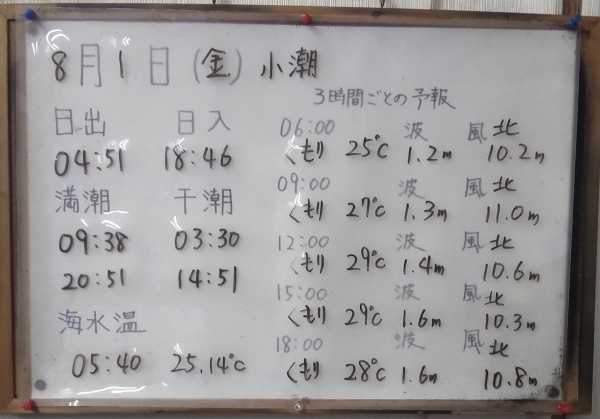 8月1日(金) 小潮
3時間ごとの予報
日出 日入
04:51 18:46
満潮 干潮
09:38 03:30
20:51 14:51
海水温
05:40 25.14℃
06:00 波 風 北
くもり 25℃ 1.2m 10.2m
09:00 波 風 北
くもり 27℃ 1.3m 11.0m
12:00 波 風 北
くもり 29℃ 1.4m 10.6m
15:00 波 風 北
くもり 29℃ 1.6m 10.3m
18:00 波 風 北
くもり 28℃ 1.6m 10.8m